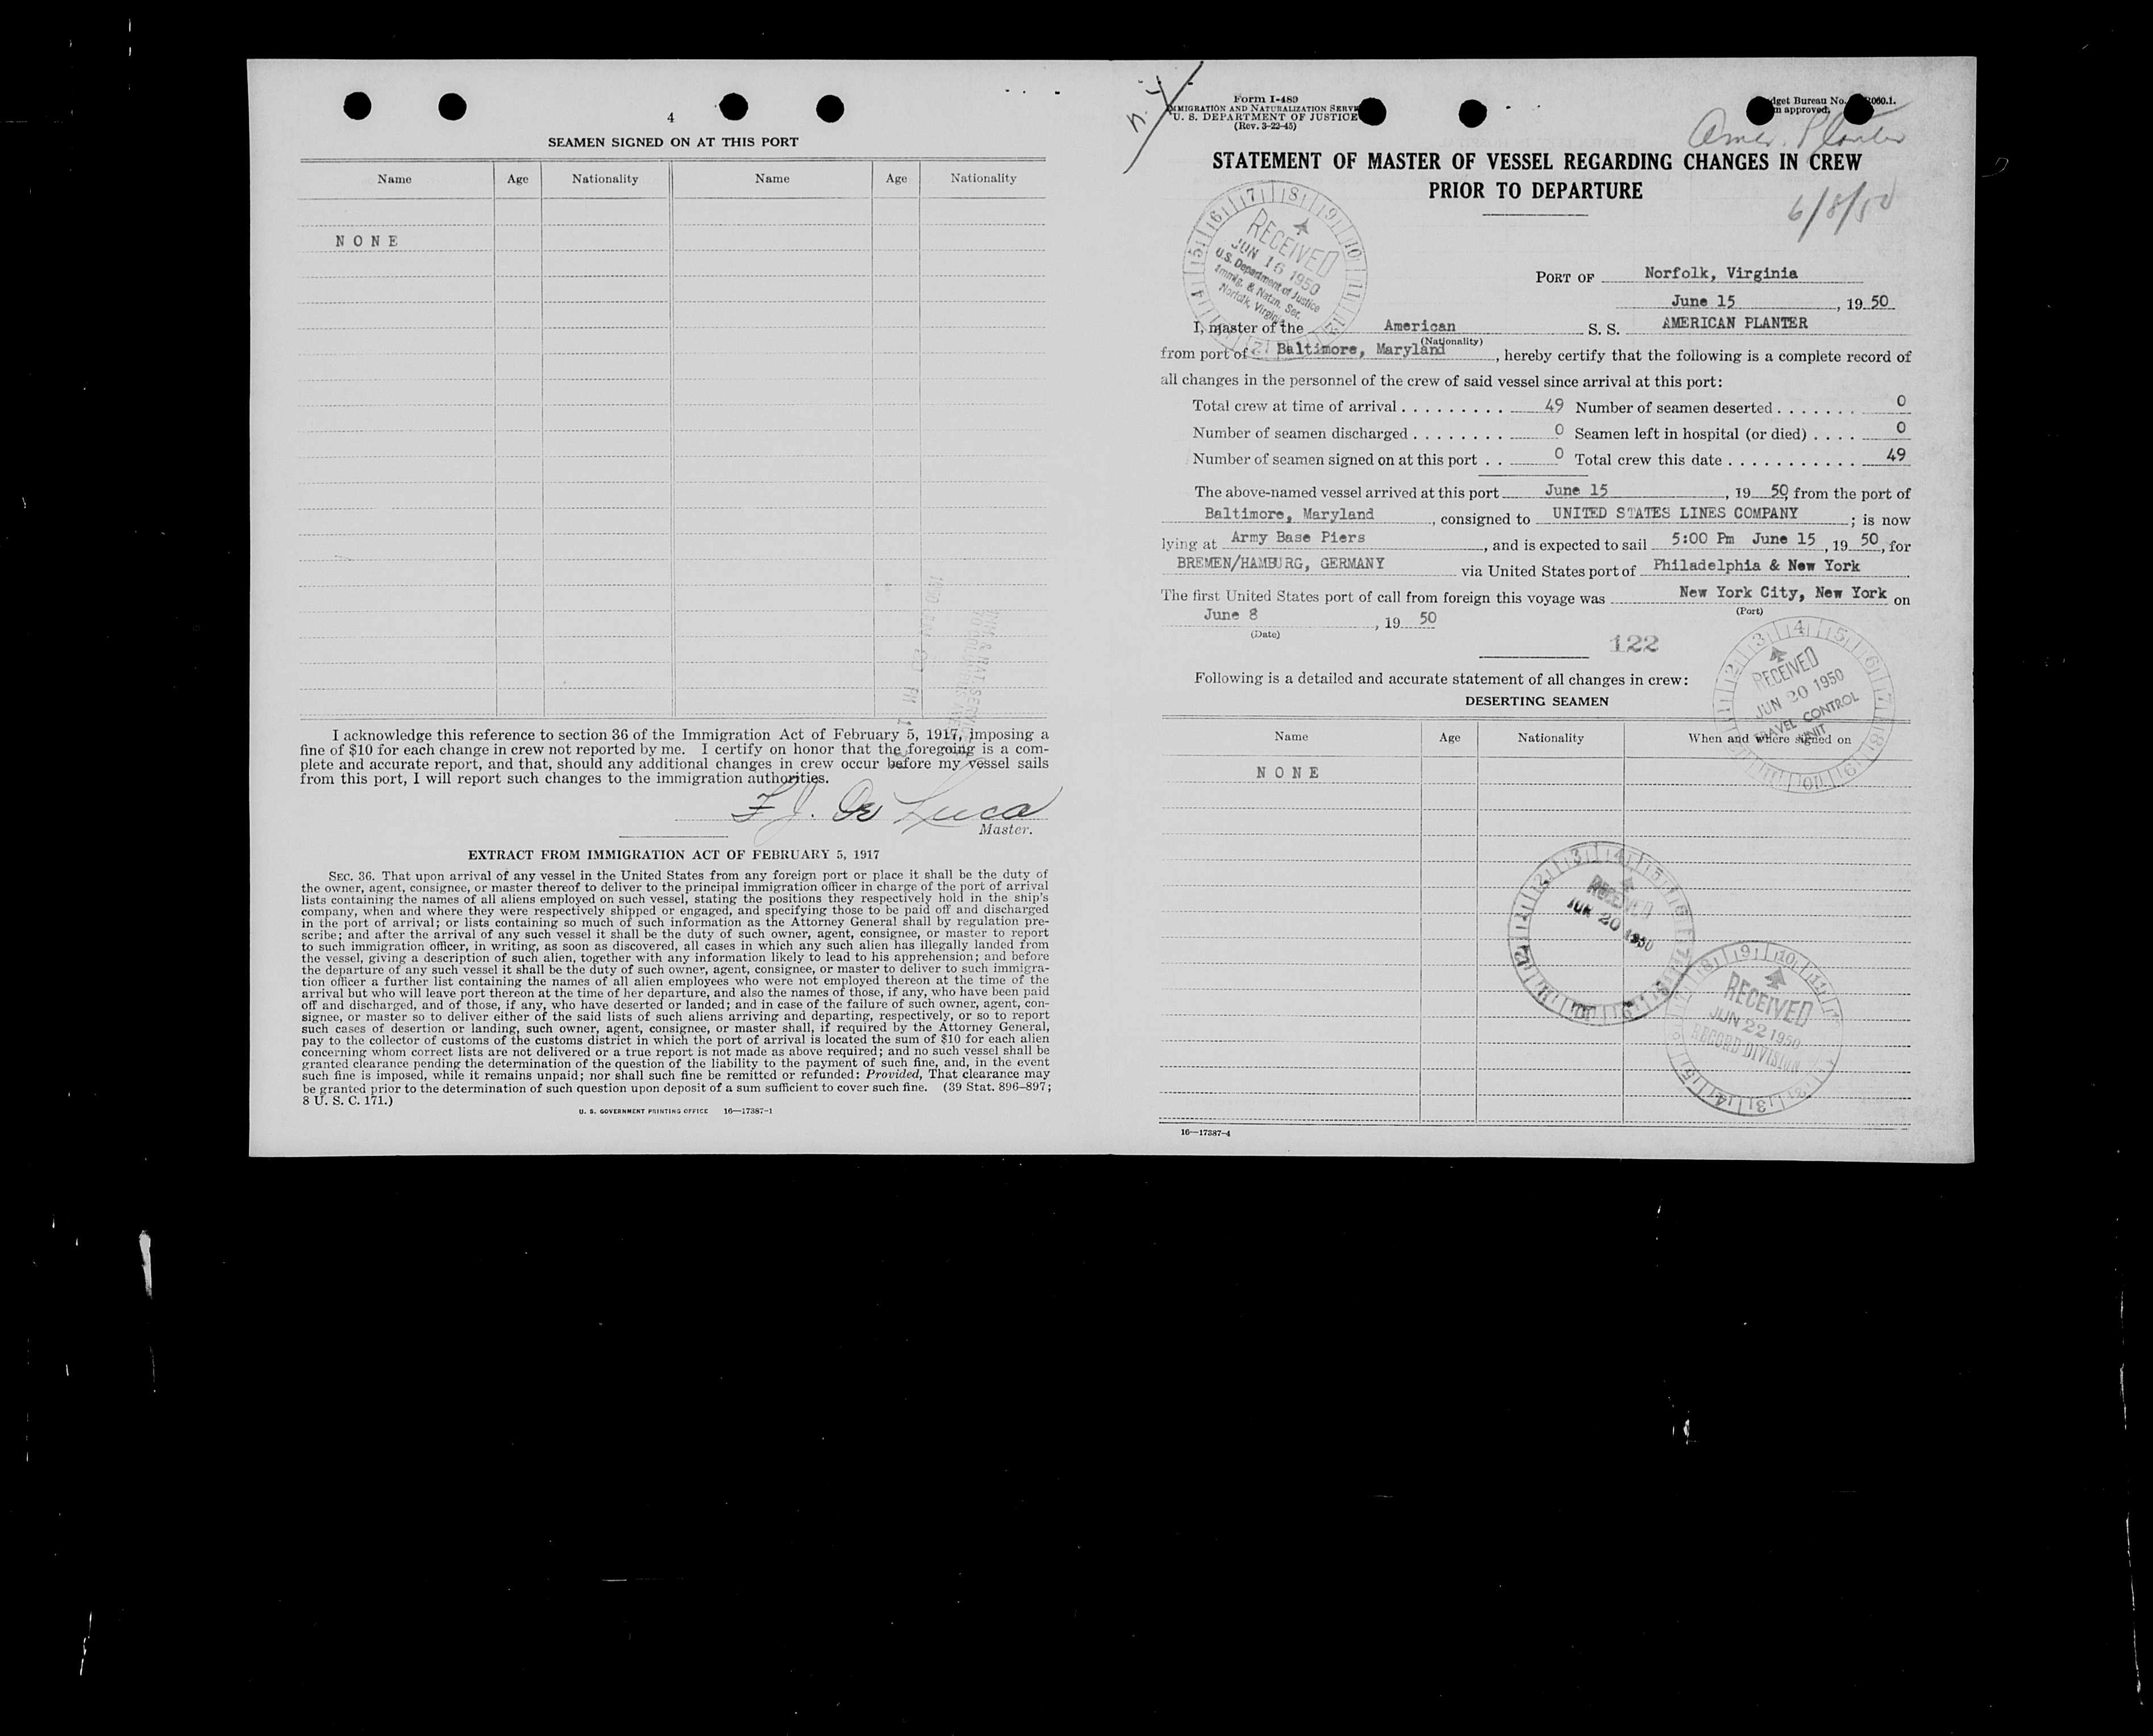 4
SEAMEN SIGNED ON AT THIS PORT
Name Age Nationality Name Age Nationality
NONE
I acknowledge this reference to section 36 of the Immigration Act of February 5, 1917, imposing a
fine of $10 for each change in crew not reported by me. I certify on honor that the foregoing is a com-
plete and accurate report, and that, should any additional changes in crew occur before my vessel sails
from this port, I will report such changes to the immigration authorities.
F J. De Luca
Master.
EXTRACT FROM IMMIGRATION ACT OF FEBRUARY 5, 1917
SEC. 36. That upon arrival of any vessel in the United States from any foreign port or place it shall be the duty of
the owner, agent, consignee, or master thereof to deliver to the principal immigration officer in charge of the port of arrival
lists containing the names of all aliens employed on such vessel, stating the positions they respectively hold in the ship's
company, when and where they were respectively shipped or engaged, and specifying those to be paid off and discharged
in the port of arrival; or lists containing so much of such information as the Attorney General shall by regulation pre-
scribe; and after the arrival of any such vessel it shall be the duty of such owner, agent, consignee, or master to report
to such immigration officer, in writing, as soon as discovered, all cases in which any such alien has illegally landed from
the vessel, giving a description of such alien, together with any information likely to lead to his apprehension; and before
the departure of any such vessel it shall be the duty of such owner, agent, consignee, or master to deliver to such immigra-
tion officer a further list containing the names of all alien employees who were not employed thereon at the time of the
arrival but who will leave port thereon at the time of her departure, and also the names of those, if any, who have been paid
off and discharged, and of those, if any, who have deserted or landed; and in case of the failure of such owner, agent, con-
signee, or master so to deliver either of the said lists of such aliens arriving and departing, respectively, or so to report
such cases of desertion or landing, such owner, agent, consignee, or master shall, if required by the Attorney General,
pay to the collector of customs of the customs district in which the port of arrival is located the sum of $10 for each alien
concerning whom correct lists are not delivered or a true report is not made as above required; and no such vessel shall be
granted clearance pending the determination of the question of the liability to the payment of such fine, and, in the event
such fine is imposed, while it remains unpaid; nor shall such fine be remitted or refunded: Provided, That clearance may
be granted prior to the determination of such question upon deposit of a sum sufficient to cover such fine. (39 Stat. 896–897;
8 U. S. C. 171.)
U. S. GOVERNMENT PRINTING OFFICE 16—17387-1
n. y.
Form I-489
IMMIGRATION AND NATURALIZATION SERV
U. S. DEPARTMENT OF JUSTICE
(Rev. 3-22-45)
dget Bureau No. 060.1.
m approved.
Amer. Planter
STATEMENT OF MASTER OF VESSEL REGARDING CHANGES IN CREW
PRIOR TO DEPARTURE
6/8/50
RECEIVED
JUN 16 1950
U.S. Department of Justice
Immig. & Natzn. Ser.
Norfolk, Virginia
PORT OF Norfolk, Virginia
June 15, 19 50
I, master of the American S. S. AMERICAN PLANTER
(Nationality)
from port of Baltimore, Maryland, hereby certify that the following is a complete record of
all changes in the personnel of the crew of said vessel since arrival at this port:
Total crew at time of arrival . . . . . . . . . 49 Number of seamen deserted . . . . . . . 0
Number of seamen discharged . . . . . . . . 0 Seamen left in hospital (or died) . . . . 0
Number of seamen signed on at this port . . 0 Total crew this date . . . . . . . . . . . 49
The above-named vessel arrived at this port June 15, 19 50, from the port of
Baltimore, Maryland, consigned to UNITED STATES LINES COMPANY; is now
lying at Army Base Piers, and is expected to sail 5:00 Pm June 15, 19 50, for
BREMEN/HAMBURG, GERMANY via United States port of Philadelphia & New York
The first United States port of call from foreign this voyage was New York City, New York on
(Port)
June 8, 19 50
(Date)
122
Following is a detailed and accurate statement of all changes in crew:
RECEIVED
JUN 20 1950
TRAVEL CONTROL
UNIT
DESERTING SEAMEN
Name Age Nationality When and where signed on
NONE
RECEIVED
JUN 20 1950
RECEIVED
JUN 22 1950
RECORD DIVISION
16—17387-4